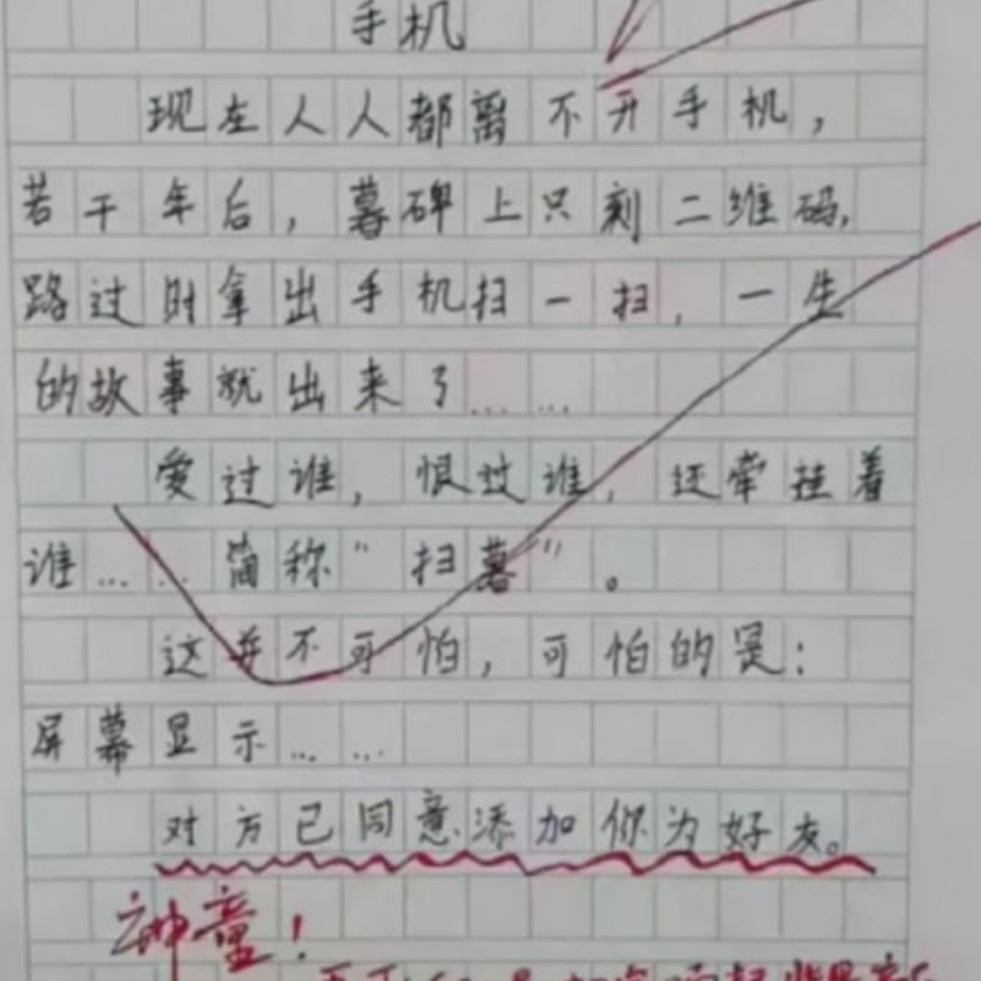 手机
现在人人都离不开手机，
若干年后，暮碑上只刻二维码，
路过时拿出手机扫一扫，一生
的故事就出来了……
爱过谁，恨过谁，还牵挂着
谁……简称“扫暮”。
这并不可怕，可怕的是：
屏幕显示……
对方已同意添加你为好友。
神童！